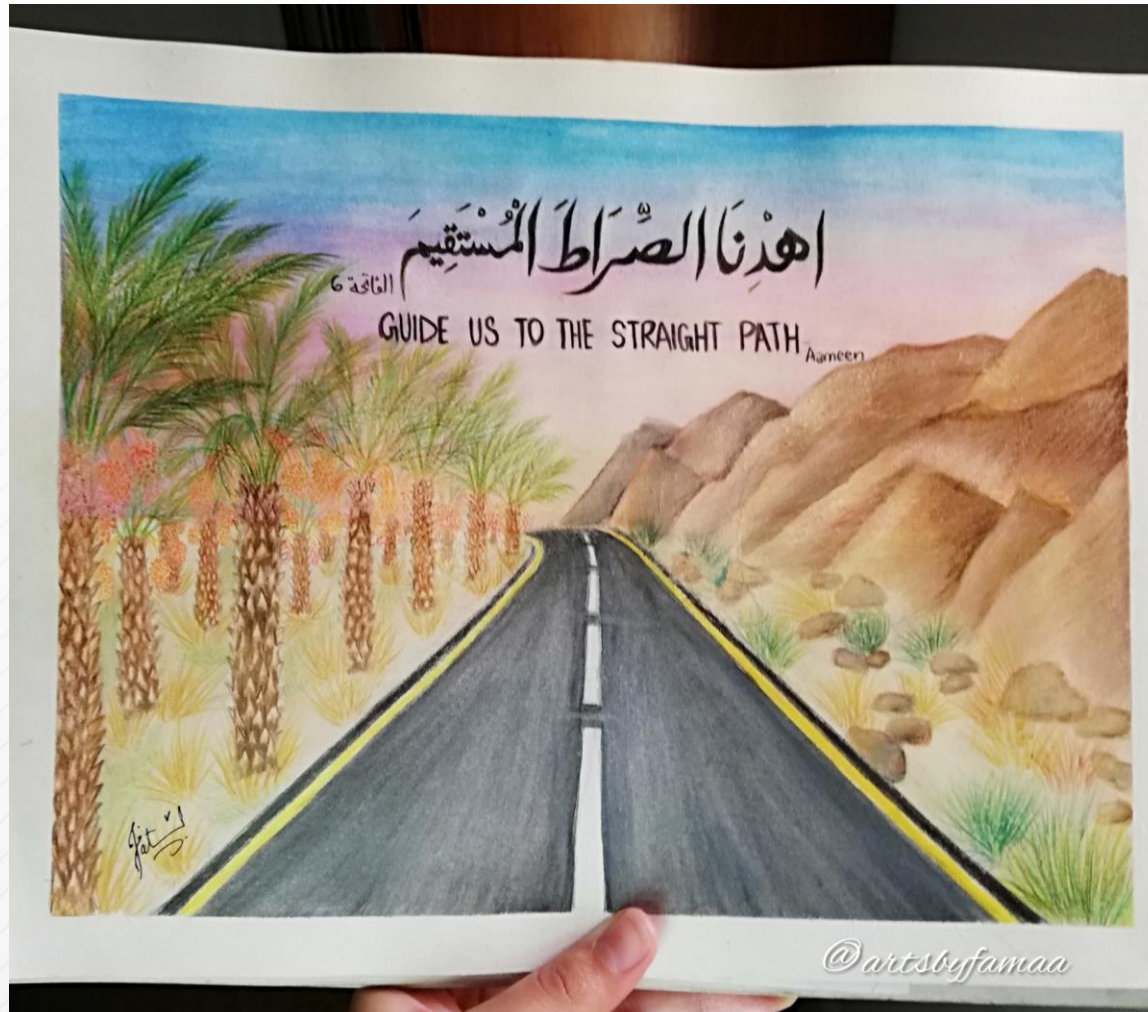 اهْدِنَا الصِّرَاطَ الْمُسْتَقِيمَ
الفاتحة 6
GUIDE US TO THE STRAIGHT PATH
Aameen
@artsbyfamaa